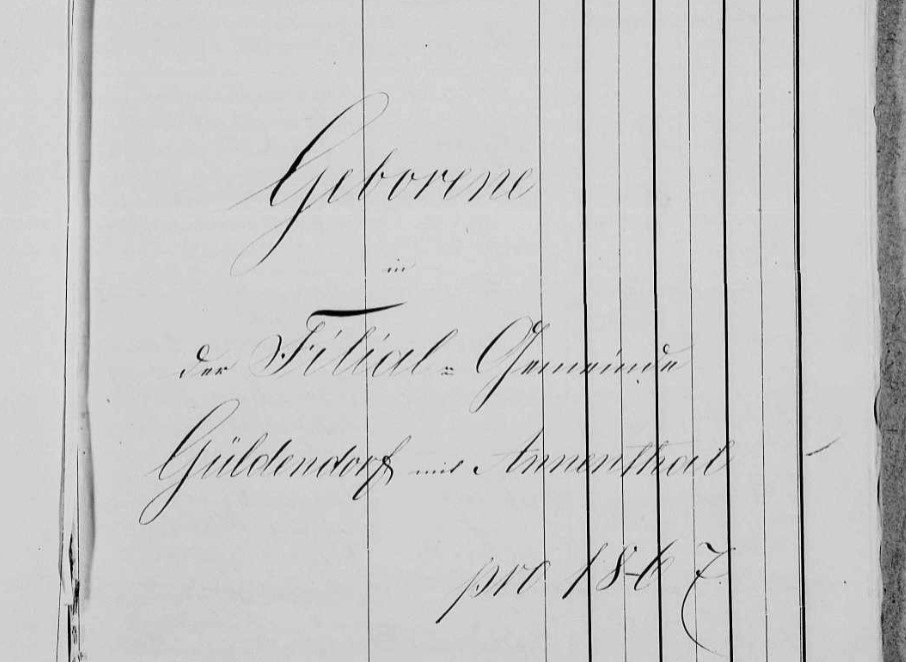 Geborene
in
der Filial = Gemeinde
Güldendorf mit Annenthal
pro 1867.